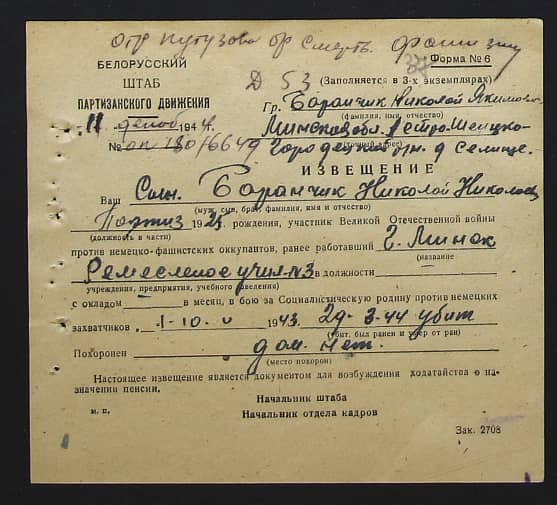 отр Кутузова бр Смерть фашизму
Форма № 6
БЕЛОРУССКИЙ
ШТАБ
ПАРТИЗАНСКОГО ДВИЖЕНИЯ
Д 53
(Заполняется в 3-х экземплярах)
Гр. Баранчик Николай Якимович
(фамилия, имя, отчество)
11 1944 г.
Минская обл.
№
Городецкий д Селище.
(точный адрес)
ИЗВЕЩЕНИЕ
Ваш Сын. Баранчик Николай Николаев
(муж, сын, брат, фамилия, имя и отчество)
Партиз 1925 рождения, участник Великой Отечественной войны
(должность в части)
против немецко-фашистских оккупантов, ранее работавший г. Минск
(название
Ремесленое учил-№3 в должности
учреждения, предприятия, учебного заведения)
с окладом в месяц, в бою за Социалистическую родину против немецких
захватчиков 1-10 1943 29-3-44 убит
(убит. был ранен и умер от ран)
Похоронен дан. нет.
(место похорон)
Настоящее извещение является документом для возбуждения ходатайства о на-
значении пенсии.
Начальник штаба
м. п.
Начальник отдела кадров
Зак. 2708